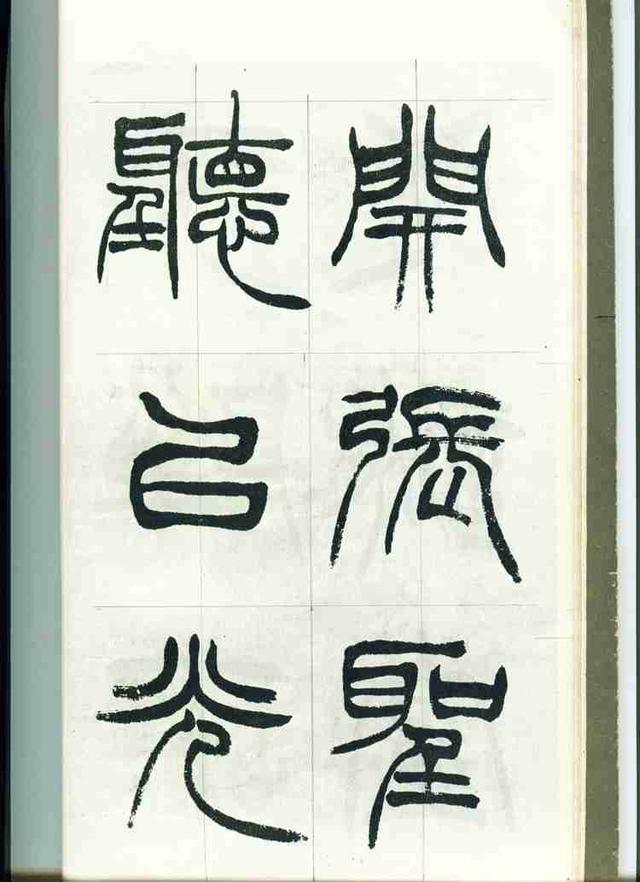 開張聖
聽㠯光